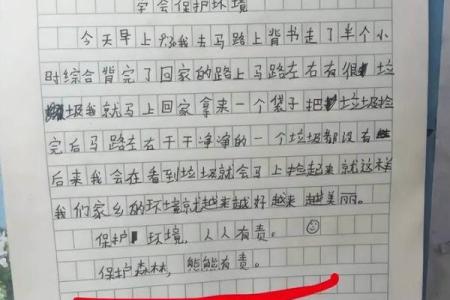 学会保护环境
今天早上9:30我去马路上背书走了半个小
时综合背完了回家的路上马路左右有很垃
圾我就马上回家拿来一个袋子把垃圾捡
完后马路左右干干净净的一个垃圾都没有
后来我会在看到垃圾就会马上捡起来就这样
我们家乡的环境就越来越好越来越美丽。
保护环境，人人有责。
保护森林，熊熊有责。